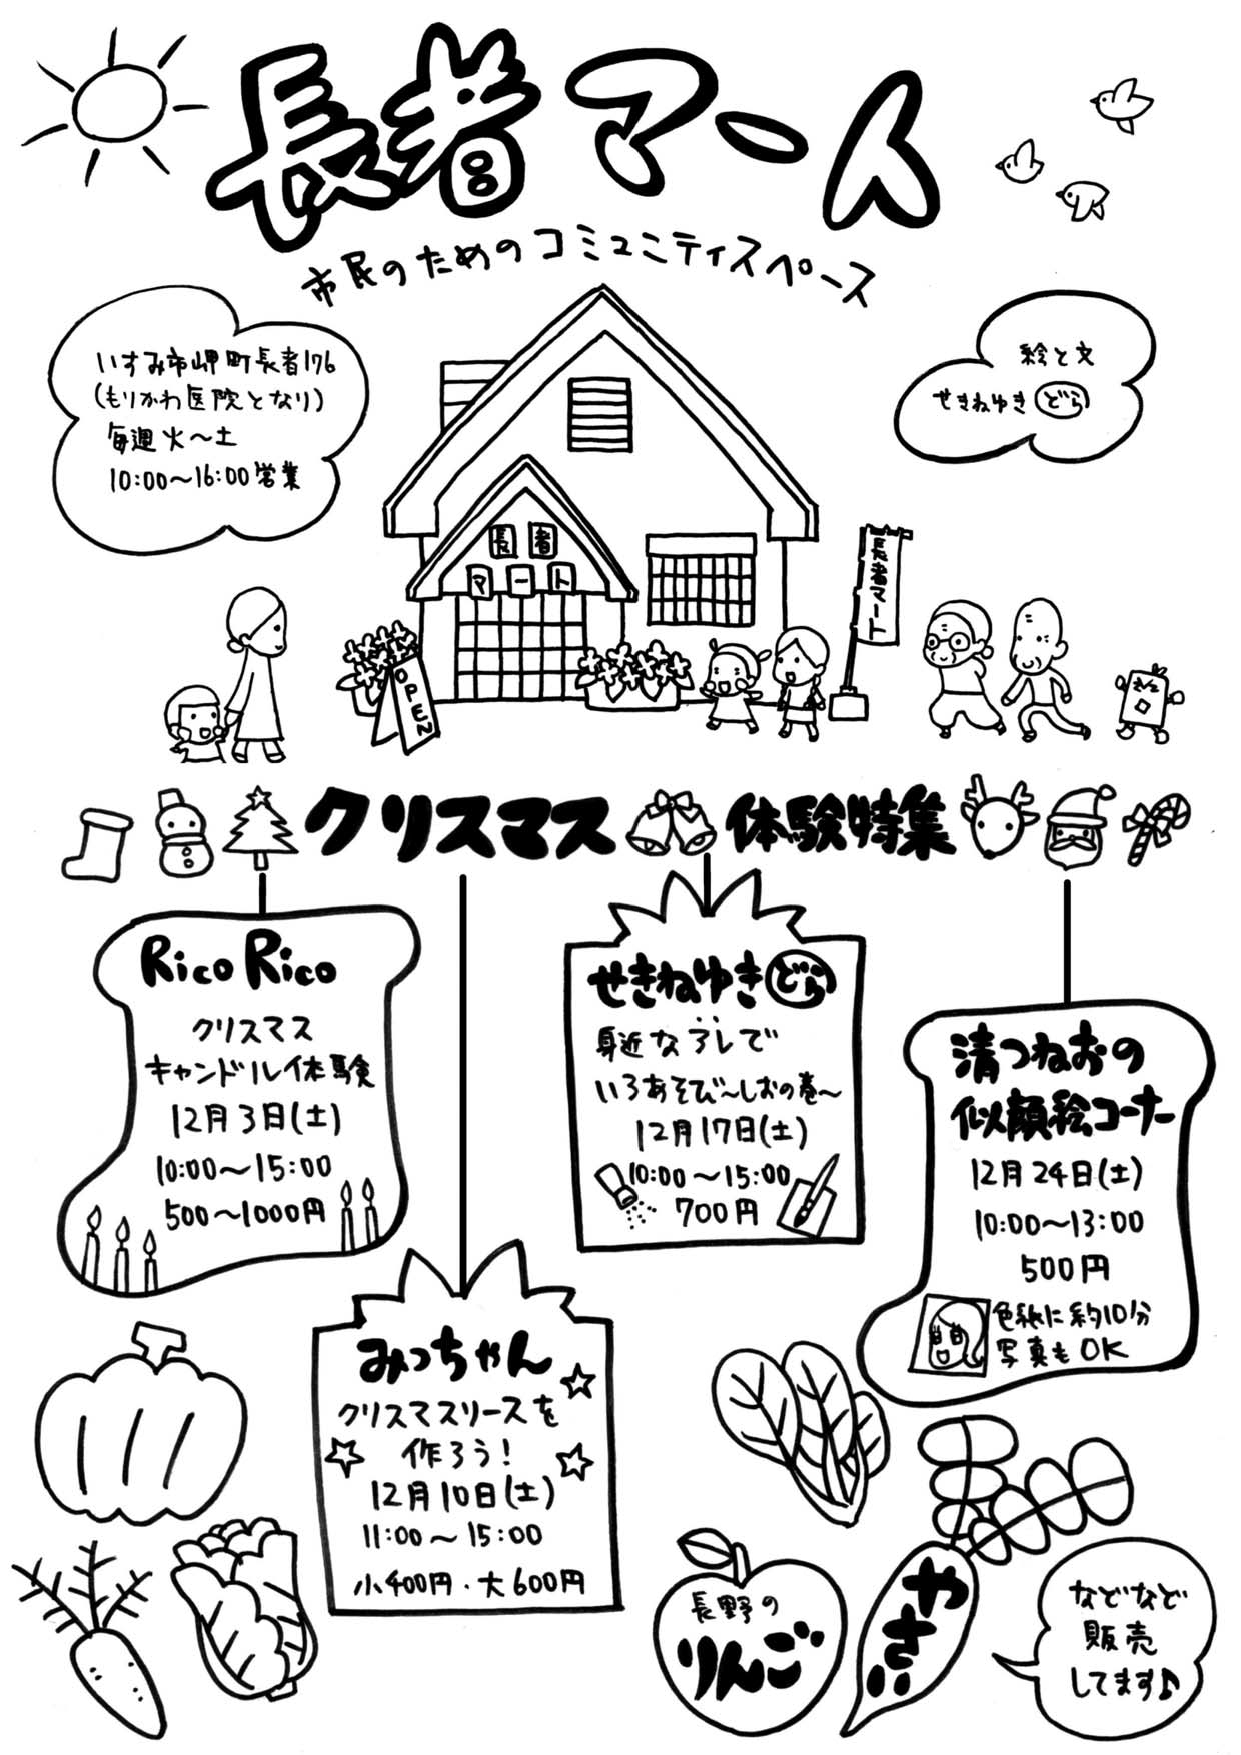 長者マート
市民のためのコミュニティスペース
いすみ市岬町長者176
(もりかわ医院となり)
毎週火〜土
10:00〜16:00営業
絵と文
せきねゆきどら
長者
マート
OPEN
長者マート
クリスマス
体験特集
Rico Rico
クリスマス
キャンドル体験
12月3日(土)
10:00〜15:00
500〜1000円
せきねゆきどら
身近なアレで
いろあそび〜しおの巻〜
12月17日(土)
10:00〜15:00
700円
清つねおの
似顔絵コーナー
12月24日(土)
10:00〜13:00
500円
色紙に約10分
写真もOK
みっちゃん
クリスマスリースを
作ろう!
12月10日(土)
11:00〜15:00
小400円・大600円
長野の
りんご
やさい
などなど
販売
してます♪